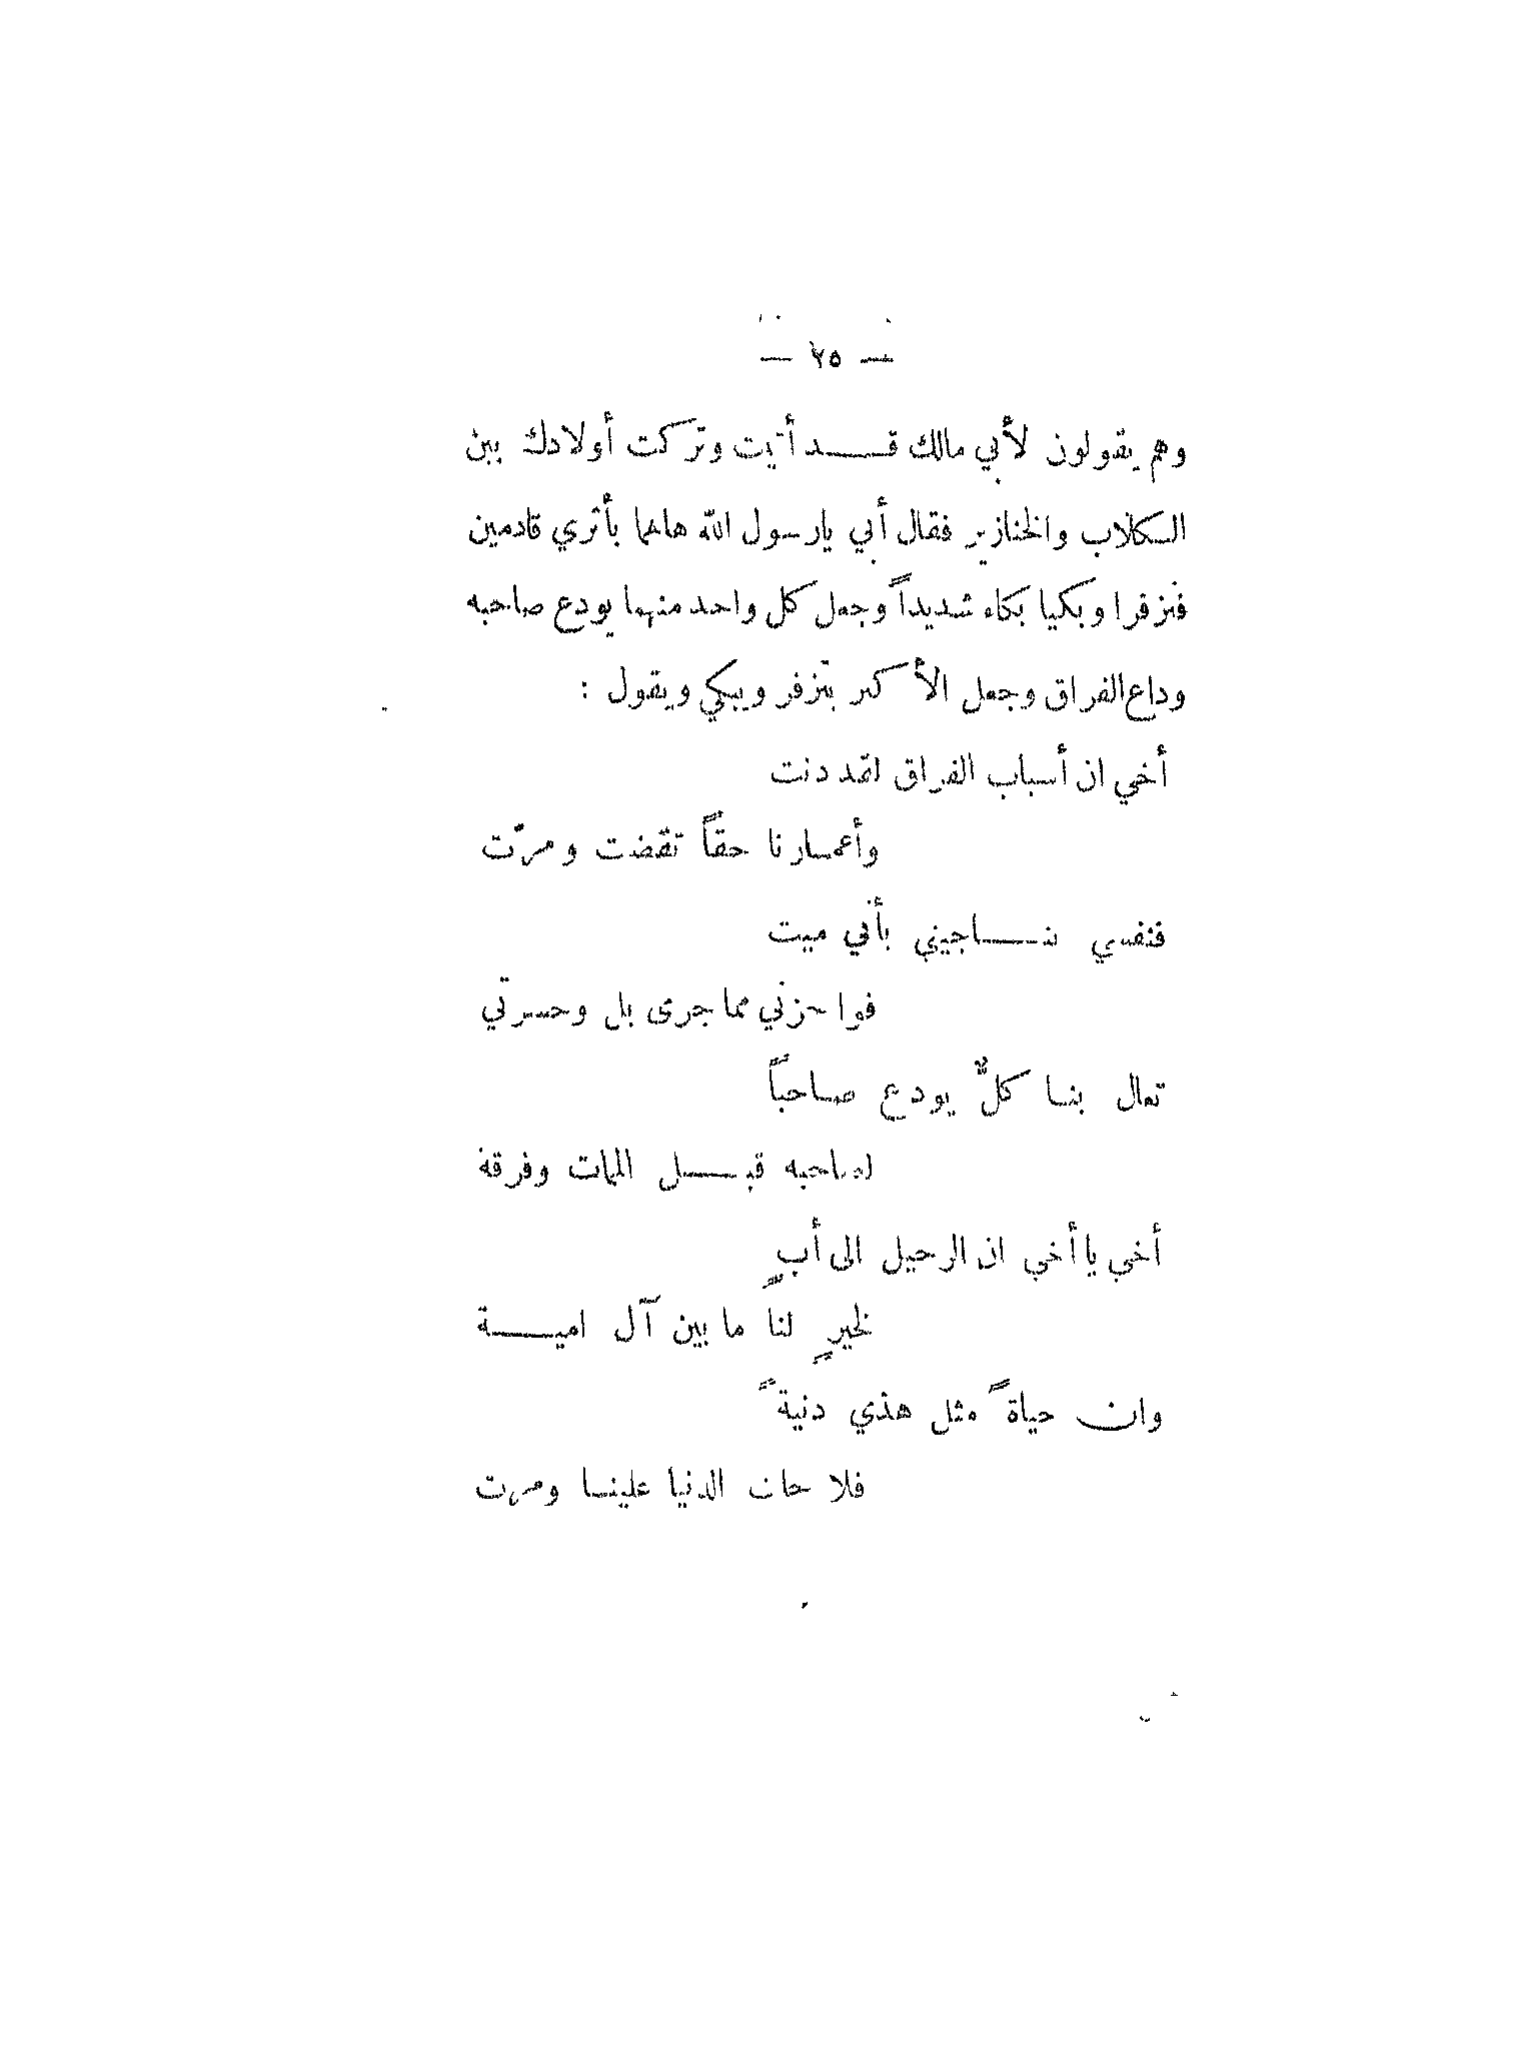 — ٢٥ —
وهم يقولون لأبي مالك قد أتيت وتركت أولادك بين
الكلاب والخنازير فقال أبي يارسول الله هاهما بأثري قادمين
فتزفرا وبكيا بكاء شديداً وجعل كل واحد منهما يودع صاحبه
وداع الفراق وجعل الأكبر يتزفر ويبكي ويقول :
أخي ان أسباب الفراق لقد دنت
وأعمارنا حقاً تقضت ومرّت
فنفسي تناجيني بأني ميت
فوا حزني مما جرى بل وحسرتي
تعال بنا كلٌّ يودع صاحباً
لصاحبه قبل الممات وفرقة
أخي يا أخي ان الرحيل الى أبٍ
لخيرٍ لنا ما بين آل امية
وان حياةً مثل هذي دنيةً
فلا حانت الدنيا علينا ومرت